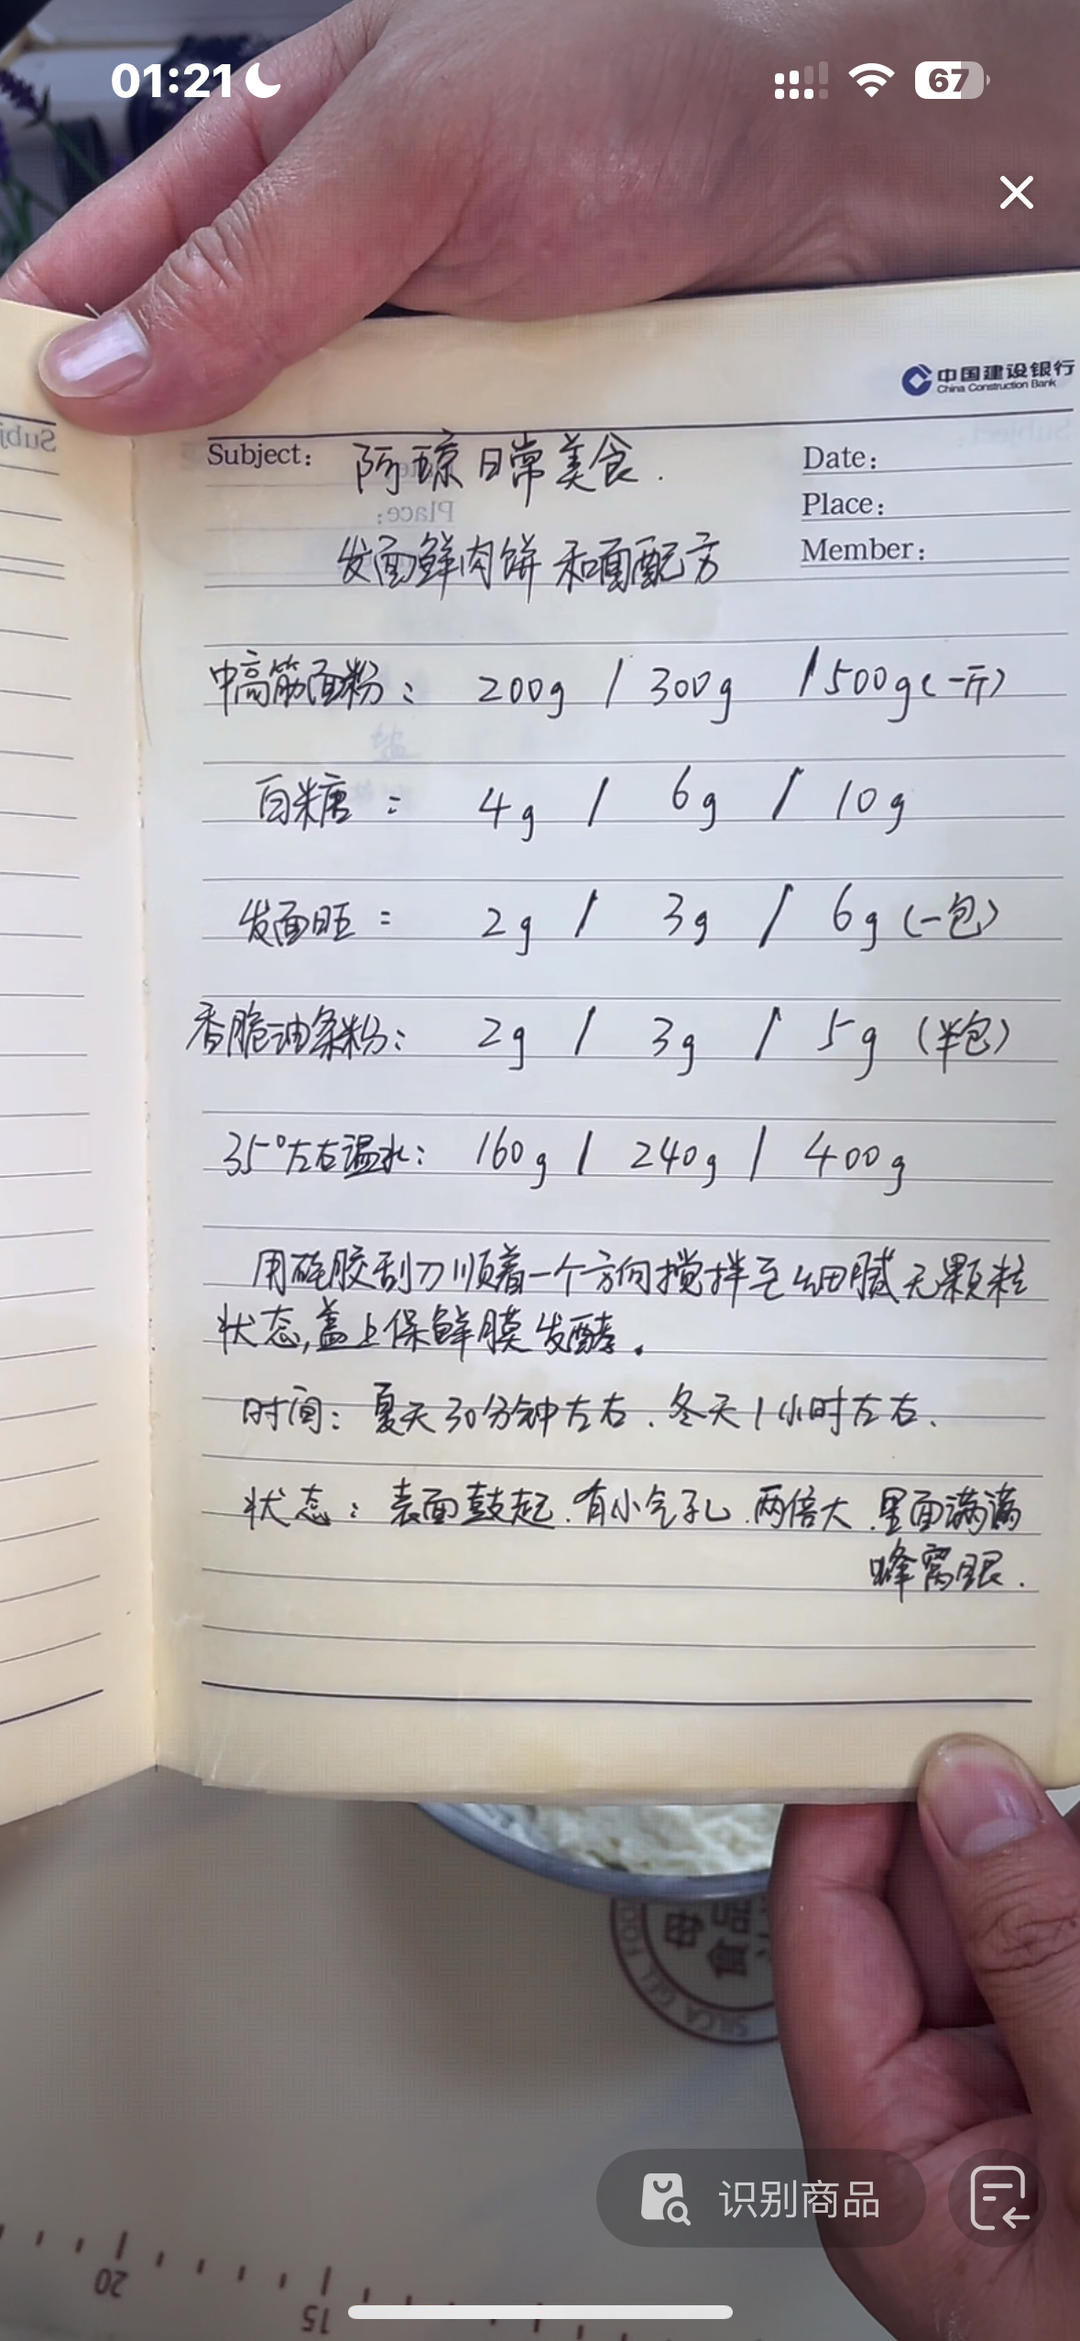 01:21
67
中国建设银行
China Construction Bank
Subject: 阿琼日常美食.
Date:
Place:
Member:
发面鲜肉饼和面配方
中高筋面粉: 200g / 300g / 500g(一斤)
白糖: 4g / 6g / 10g
发面旺: 2g / 3g / 6g(一包)
香脆油条粉: 2g / 3g / 5g (半包)
35°左右温水: 160g / 240g / 400g
用硅胶刮刀顺着一个方向搅拌至细腻无颗粒
状态,盖上保鲜膜发酵。
时间: 夏天30分钟左右.冬天1小时左右.
状态: 表面鼓起.有小气孔.两倍大.里面满满
蜂窝眼.
食品
SILICA GEL
识别商品
20
15